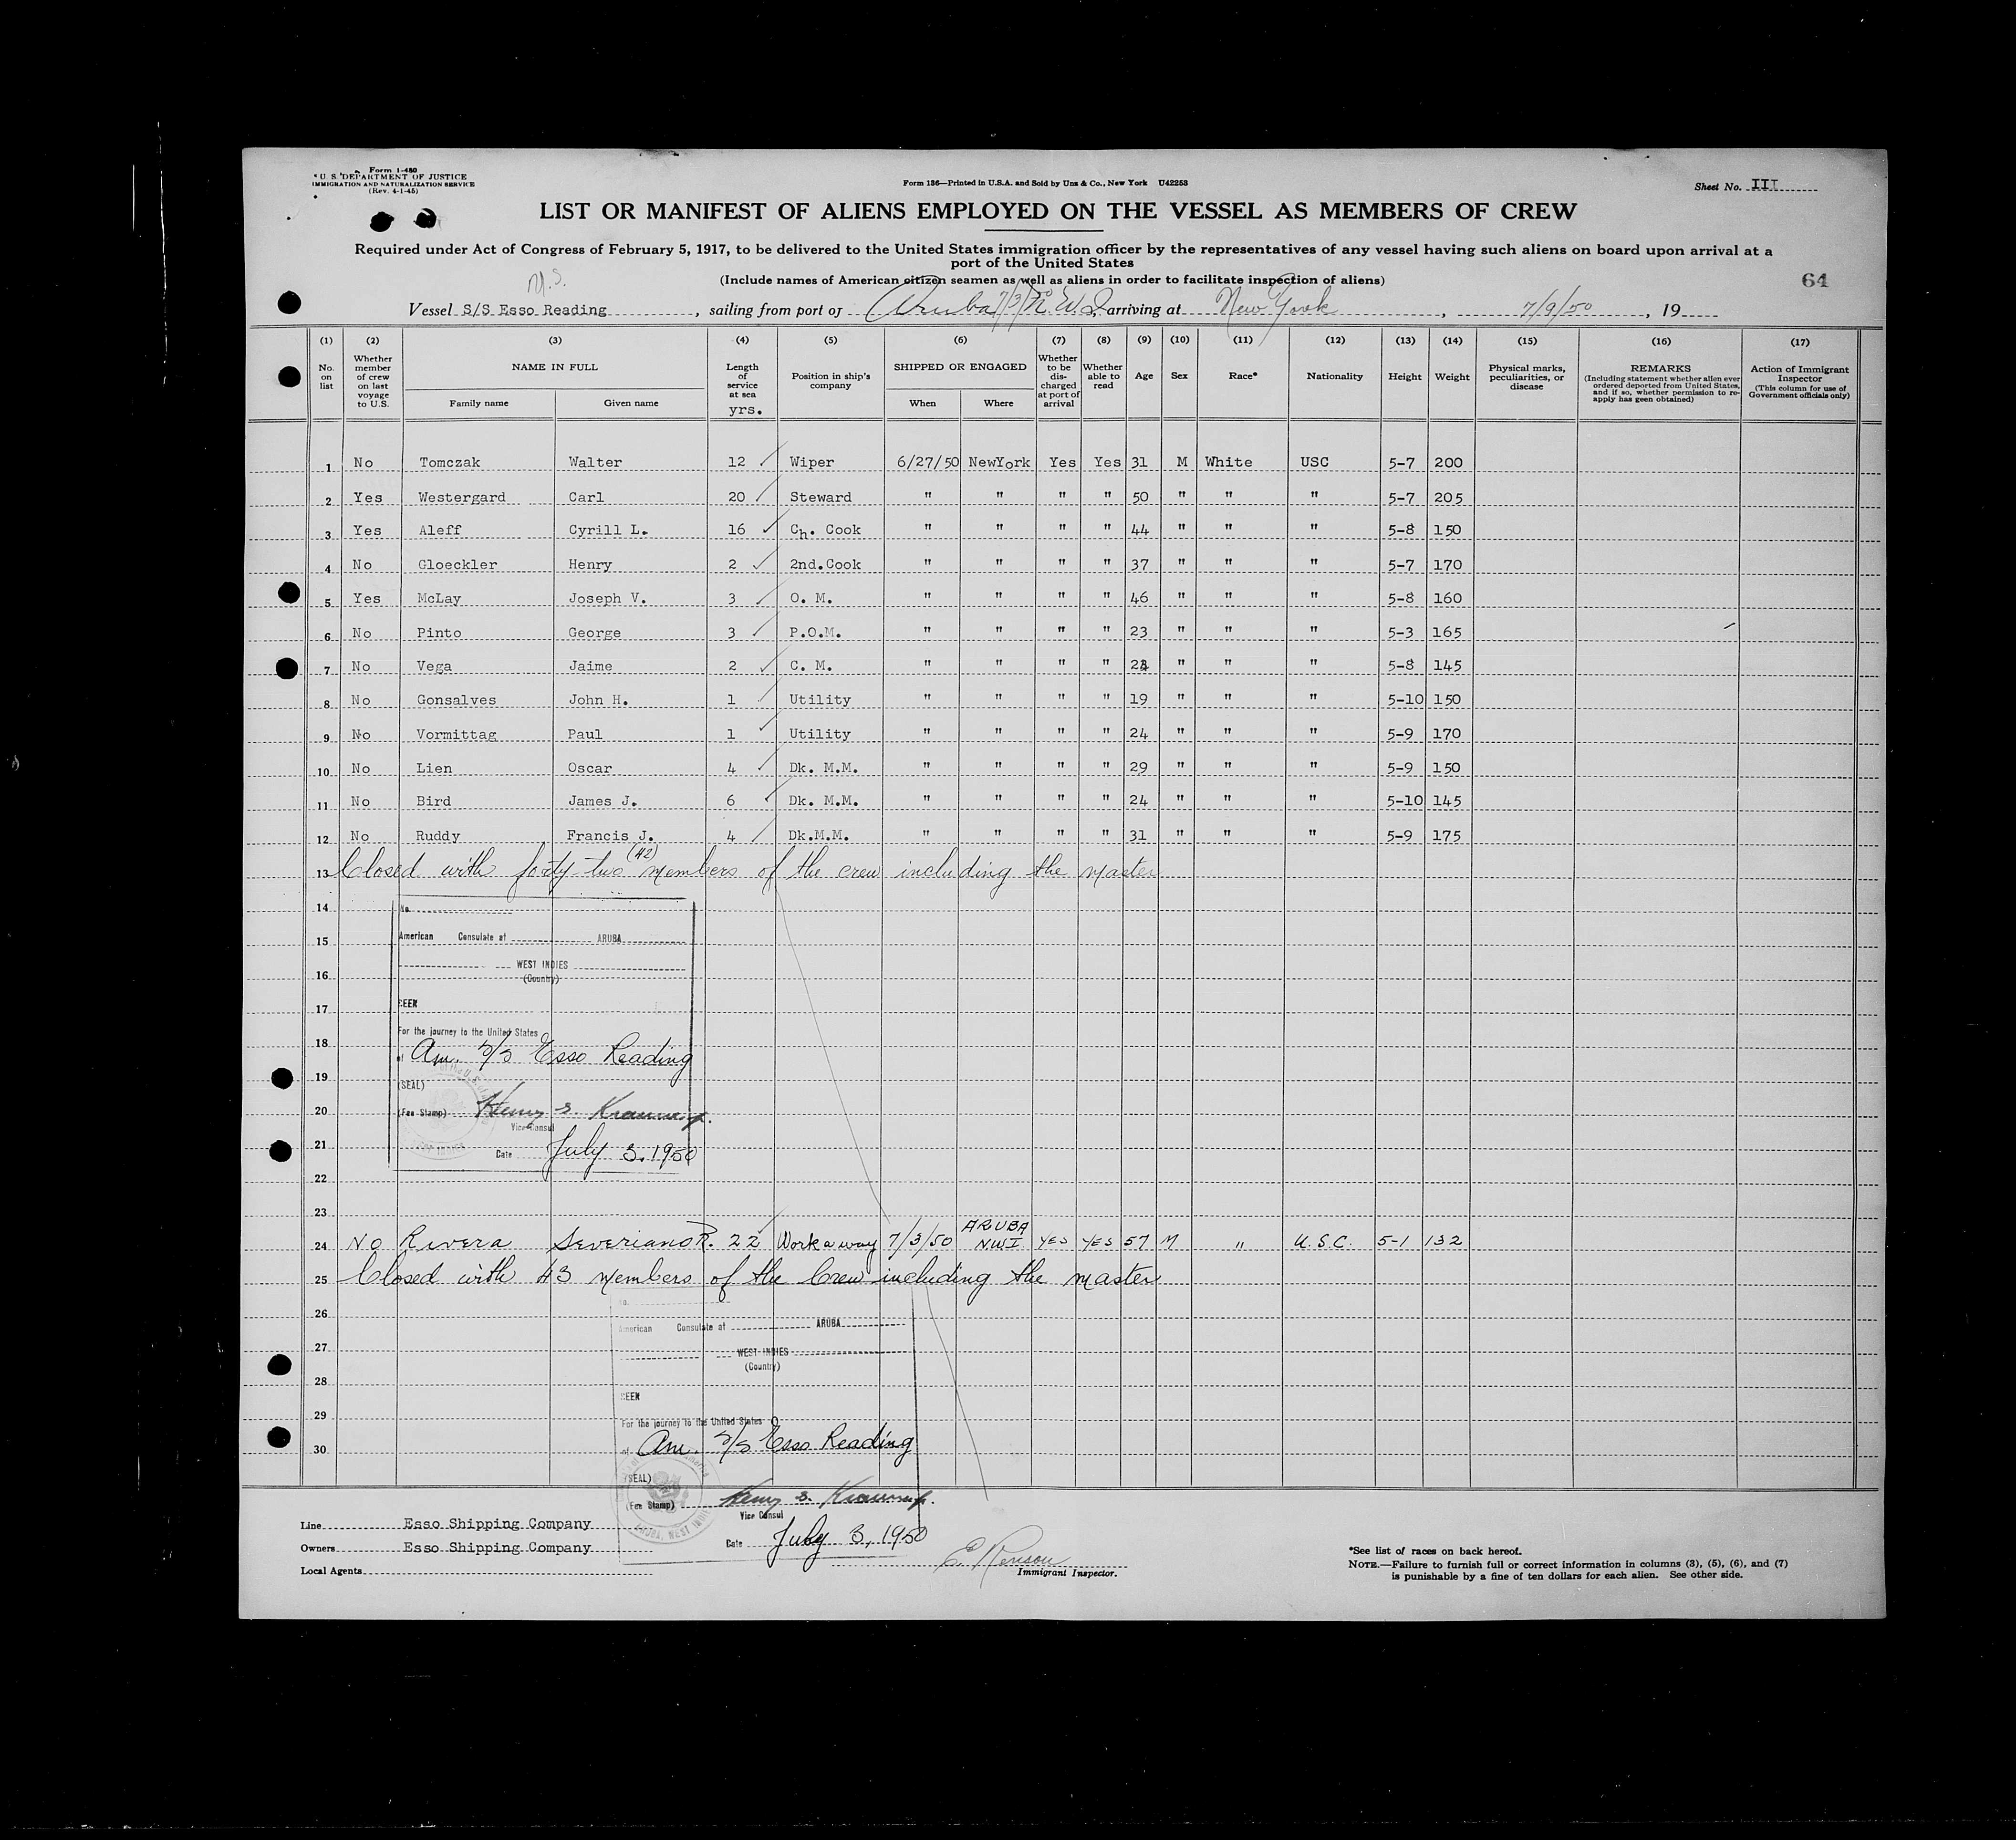 Form I-480
U. S. DEPARTMENT OF JUSTICE
IMMIGRATION AND NATURALIZATION SERVICE
(Rev. 4-1-45)
Form 136—Printed in U.S.A. and Sold by Unz & Co., New York U42253
Sheet No. III
LIST OR MANIFEST OF ALIENS EMPLOYED ON THE VESSEL AS MEMBERS OF CREW
Required under Act of Congress of February 5, 1917, to be delivered to the United States immigration officer by the representatives of any vessel having such aliens on board upon arrival at a
port of the United States
(Include names of American citizen seamen as well as aliens in order to facilitate inspection of aliens)
64
M.S.
Vessel S/S Esso Reading, sailing from port of Aruba 7/3/50 N.W.I., arriving at New York, 7/9/50, 19
(1) (2) (3) (4) (5) (6) (7) (8) (9) (10) (11) (12) (13) (14) (15) (16) (17)
No. on list
Whether member of crew on last voyage to U.S.
NAME IN FULL
Family name Given name
Length of service at sea yrs.
Position in ship's company
SHIPPED OR ENGAGED
When Where
Whether to be discharged at port of arrival
Whether able to read
Age
Sex
Race*
Nationality
Height
Weight
Physical marks, peculiarities, or disease
REMARKS
(Including statement whether alien ever ordered deported from United States, and if so, whether permission to reapply has geen obtained)
Action of Immigrant Inspector
(This column for use of Government officials only)
1 No Tomczak Walter 12 Wiper 6/27/50 NewYork Yes Yes 31 M White USC 5-7 200
2 Yes Westergard Carl 20 Steward " " " " 50 " " " 5-7 205
3 Yes Aleff Cyrill L. 16 Ch. Cook " " " " 44 " " " 5-8 150
4 No Gloeckler Henry 2 2nd.Cook " " " " 37 " " " 5-7 170
5 Yes McLay Joseph V. 3 O. M. " " " " 46 " " " 5-8 160
6 No Pinto George 3 P.O.M. " " " " 23 " " " 5-3 165
7 No Vega Jaime 2 C. M. " " " " " " " 5-8 145
8 No Gonsalves John H. 1 Utility " " " " 19 " " " 5-10 150
9 No Vormittag Paul 1 Utility " " " " 24 " " " 5-9 170
10 No Lien Oscar 4 Dk. M.M. " " " " 29 " " " 5-9 150
11 No Bird James J. 6 Dk. M.M. " " " " 24 " " " 5-10 145
12 No Ruddy Francis J. 4 Dk.M.M. " " " " 31 " " " 5-9 175
13 Closed with forty-two (42) members of the crew including the master
14 No.
15 American Consulate at ARUBA
16 WEST INDIES
(Country)
17 SEEN
For the journey to the United States
18 of Am. S/S Esso Reading
19 (SEAL)
20 (Fee Stamp) Henry S.
Vice Consul
21 Date July 3, 1950
22
23
24 No Rivera Severiano R. 22 Workaway 7/3/50 ARUBA NWI YES YES 57 M " U.S.C. 5-1 132
25 Closed with 43 members of the Crew including the master
No.
26 American Consulate at ARUBA
27 WEST INDIES
(Country)
28 SEEN
29 For the journey to the United States
30 of Am. S/S Esso Reading
(SEAL)
(Fee Stamp) Henry S.
Vice Consul
Date July 3, 1950
ARUBA, WEST INDIES
Line Esso Shipping Company
Owners Esso Shipping Company
Local Agents
Immigrant Inspector.
*See list of races on back hereof.
NOTE.—Failure to furnish full or correct information in columns (3), (5), (6), and (7)
is punishable by a fine of ten dollars for each alien. See other side.